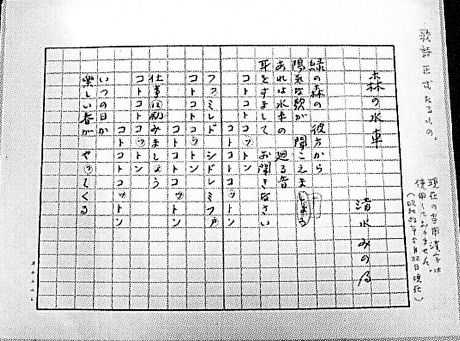 現在の当用漢字は
使用しておりません
森の水車
清水みのる
緑の森の 彼方から
陽気な歌が 聞こえます
あれは水車の 廻る音
耳をすまして お聞きなさい
コトコトコットン
コトコトコットン
ファミレド シドレミファ
コトコトコットン
コトコトコットン
仕事に励みましょう
コトコトコットン
コトコトコットン
いつの日か
楽しい春が やってくる